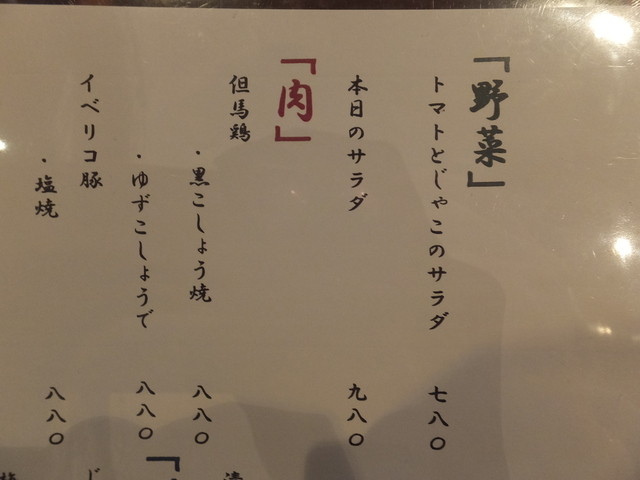 「野菜」
トマトとじゃこのサラダ 七八〇
本日のサラダ 九八〇
「肉」
但馬鶏
・黒こしょう焼 八八〇
・ゆずこしょうで 八八〇
イベリコ豚
・塩焼 八八〇